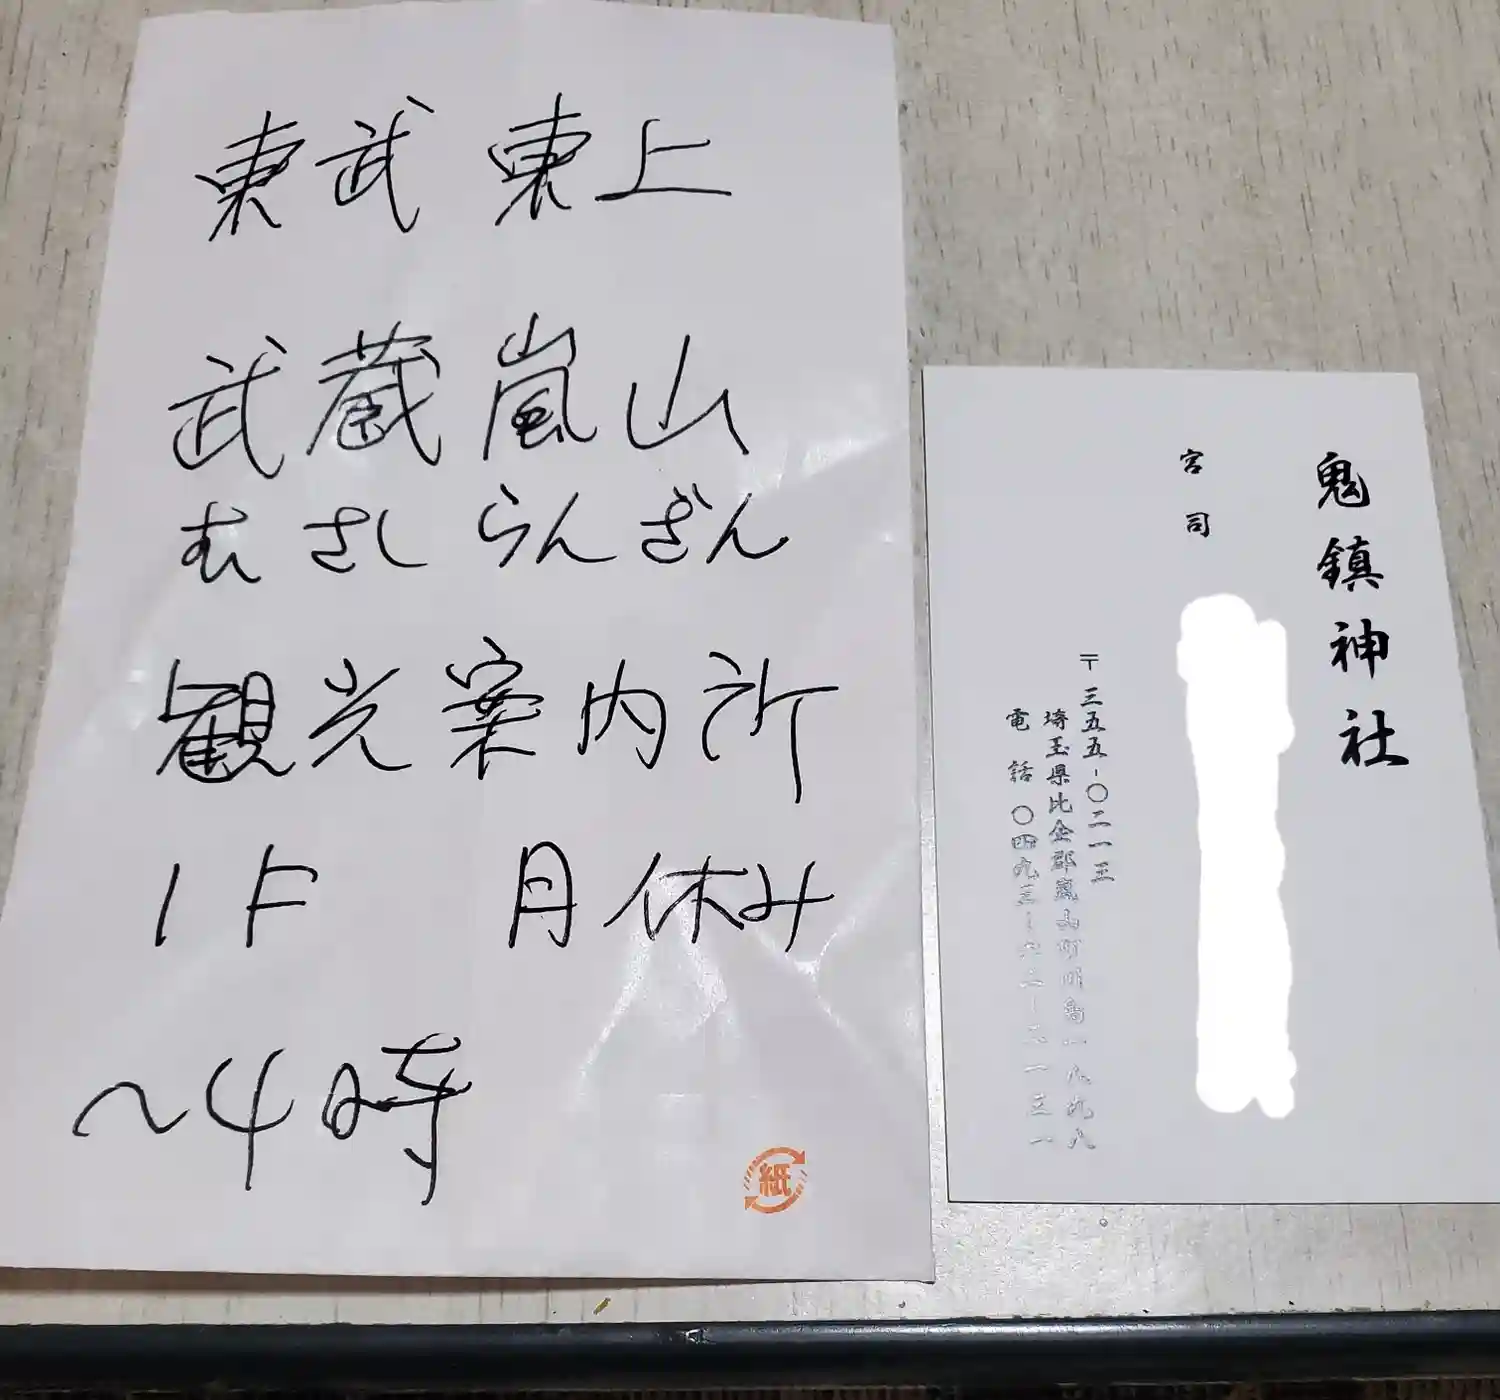 東武東上
武蔵嵐山
むさしらんざん
観光案内所
1F 月休み
~4時
紙
鬼鎮神社
宮司
〒三五五-〇二一三
埼玉県比企郡嵐山町川島一八九八
電話〇四九三-六二-二一三一